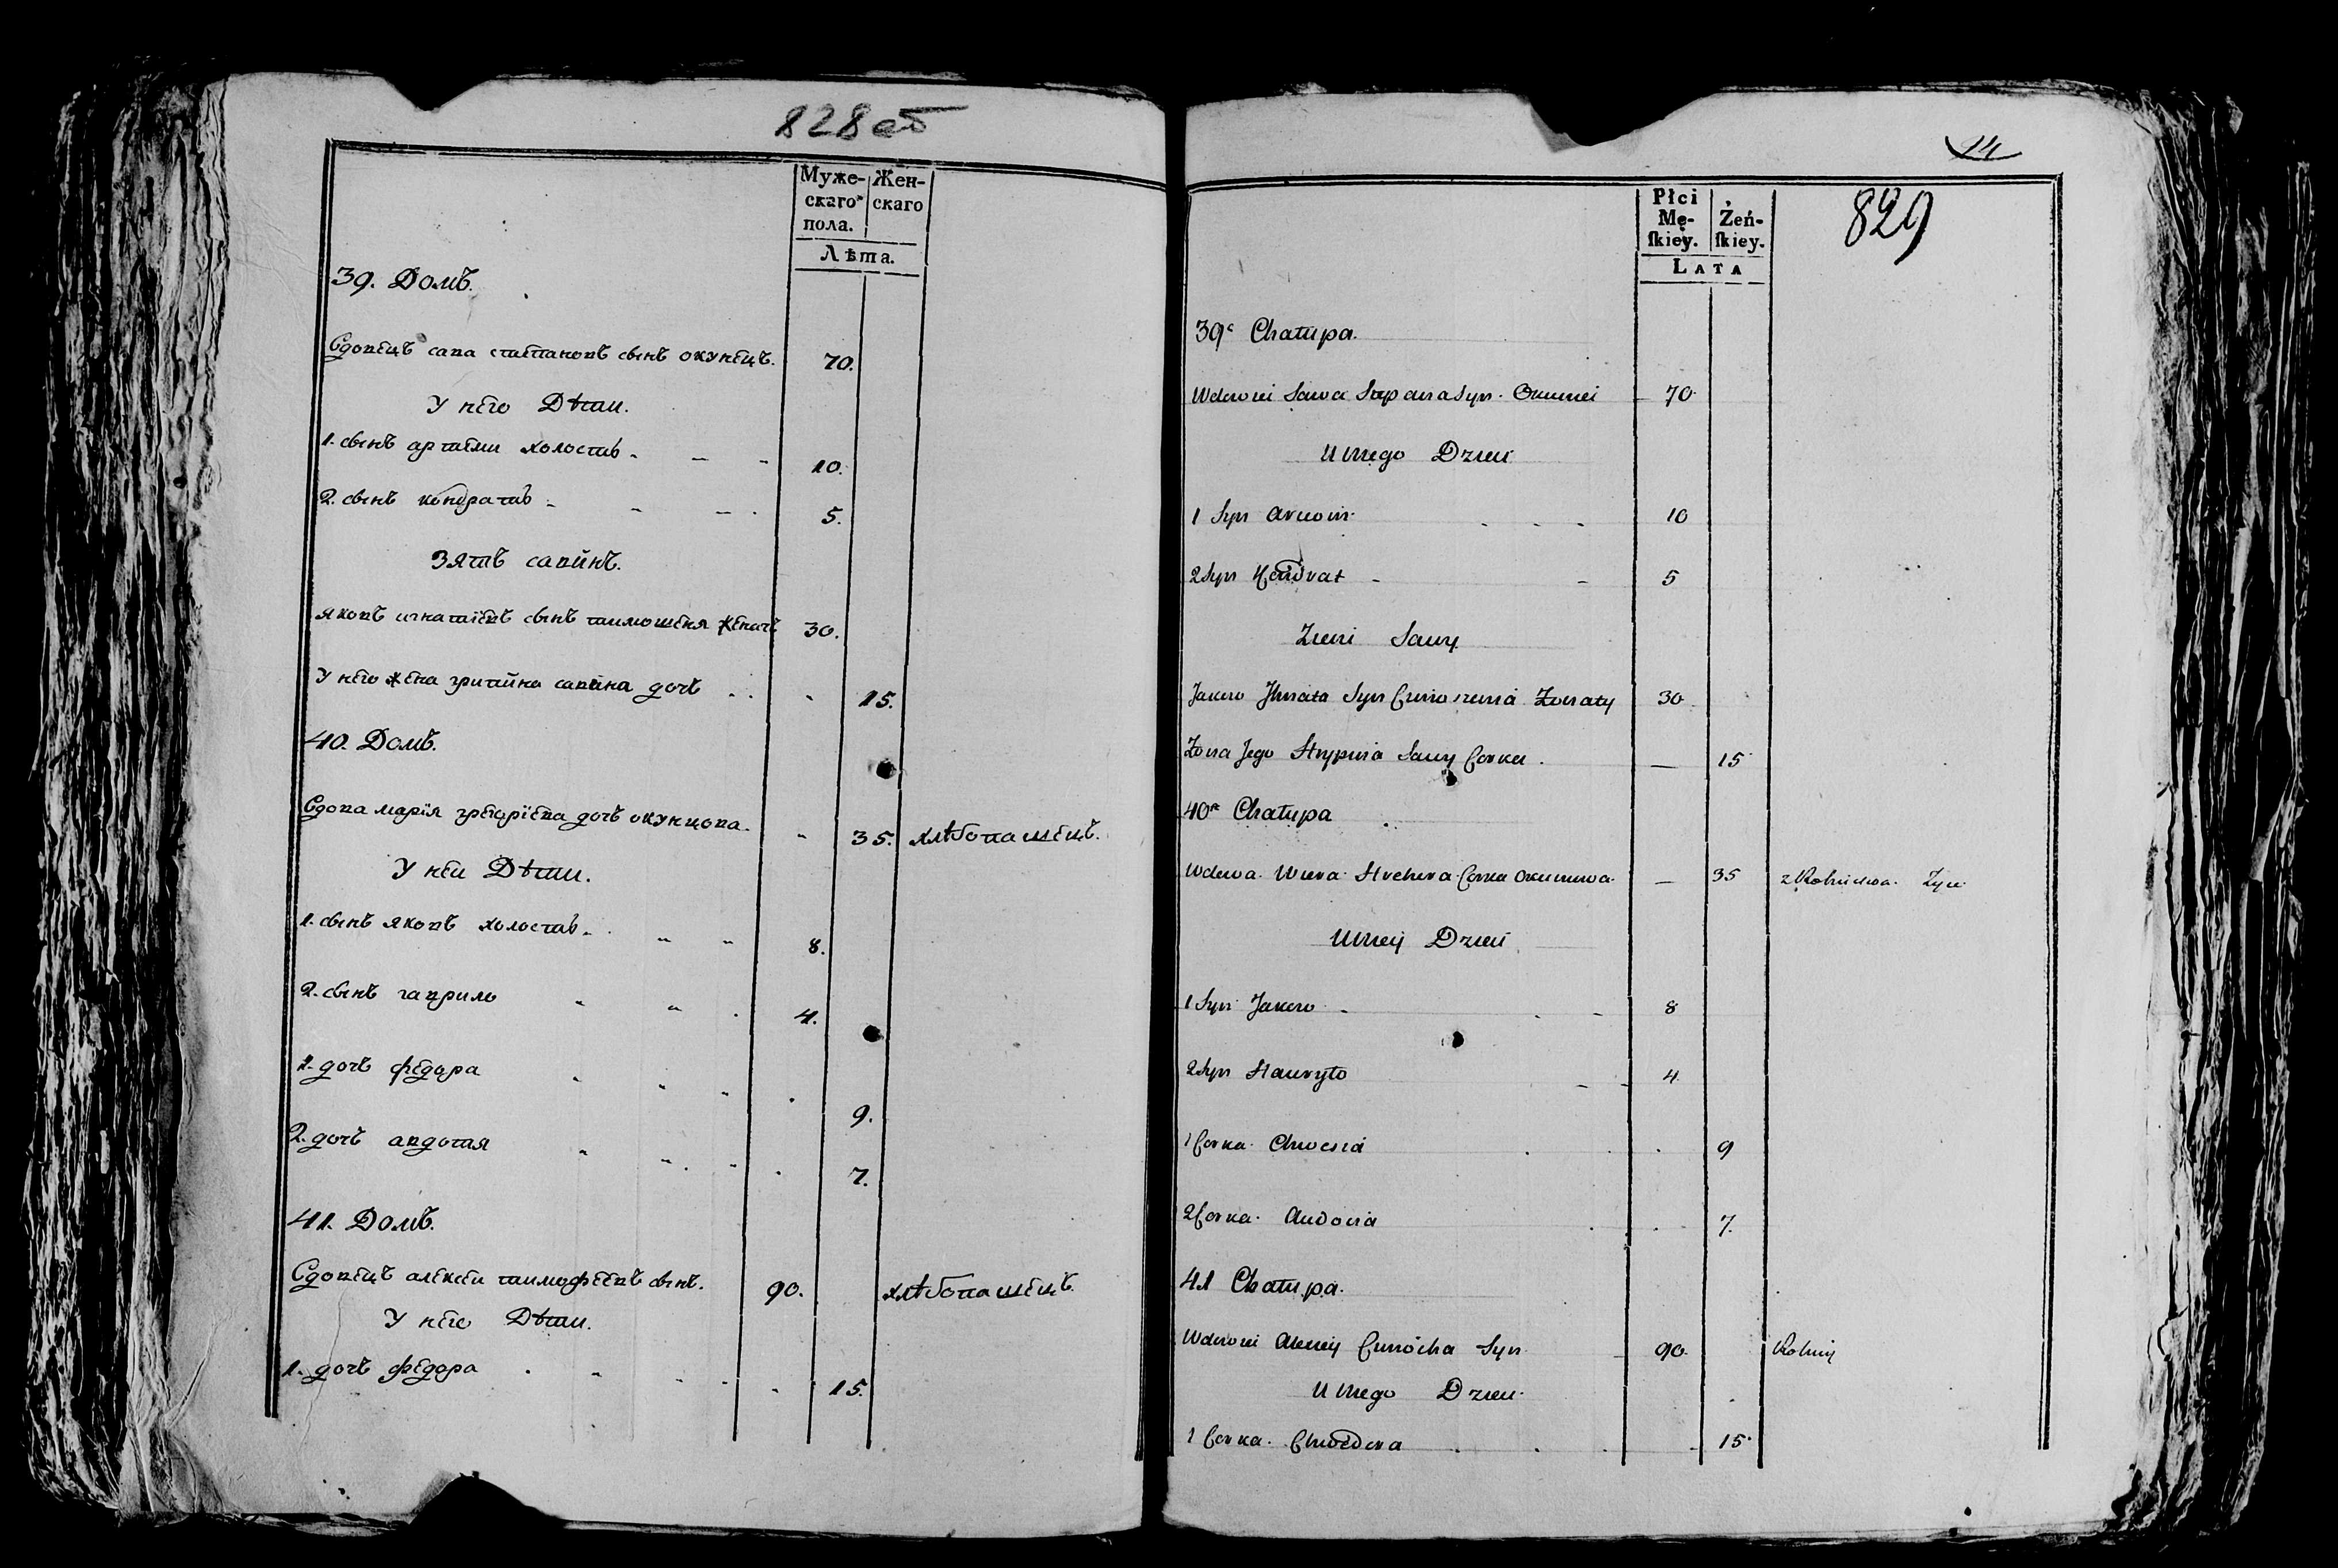 828 об
Муже-
скаго
пола.
Жен-
скаго
Лѣта.
39. Домъ.
Вдовецъ сава степановъ сынъ окунецъ. 70.
У него Дѣти.
1. сынъ артеми холостъ 10.
2. сынъ кондратъ 5.
Зять савинъ.
яковъ игнатіевъ сынъ тимошеня женатъ 30.
У него жена грипина савина дочь 15.
40. Домъ.
Вдова марія грегоріева дочь окунцова. 35. хлѣбопашецъ.
У неи Дѣти.
1. сынъ яковъ холостъ 8.
2. сынъ гаврило 4.
1. дочь федора 9.
2. дочь авдотия 7.
41. Домъ.
Вдовецъ алексеи тимофеевъ сынъ. 90. хлѣбопашецъ.
У него Дѣти.
1. дочь федора 15.
14
829
Płci
Mę-
ſkiey.
Żeń-
ſkiey.
LATA
39a Chałupa.
Wdowiec Sawa Stepana Syn Okuniec 70
U niego Dzieci
1 Syn 10
2 Syn Kondrat 5
Zienc Sawy
Jakow Ihnata Syn Cimoszenia Zonaty 30
Zona Jego Hrypina Sawy Corka 15
40a Chałupa
Wdowa Hrehora Corka Okuncowa 35 z Rolnictwa Zyie
U niey Dzieci
1 Syn Jakow 8
2 Syn Hawryło 4
1 Corka Chwesia 9
2 Corka Audocia 7.
41 Chałupa.
Wdowiec Alexiey Cimocha Syn 90 Rolnik
U niego Dzieci
1 Corka Chwedora 15